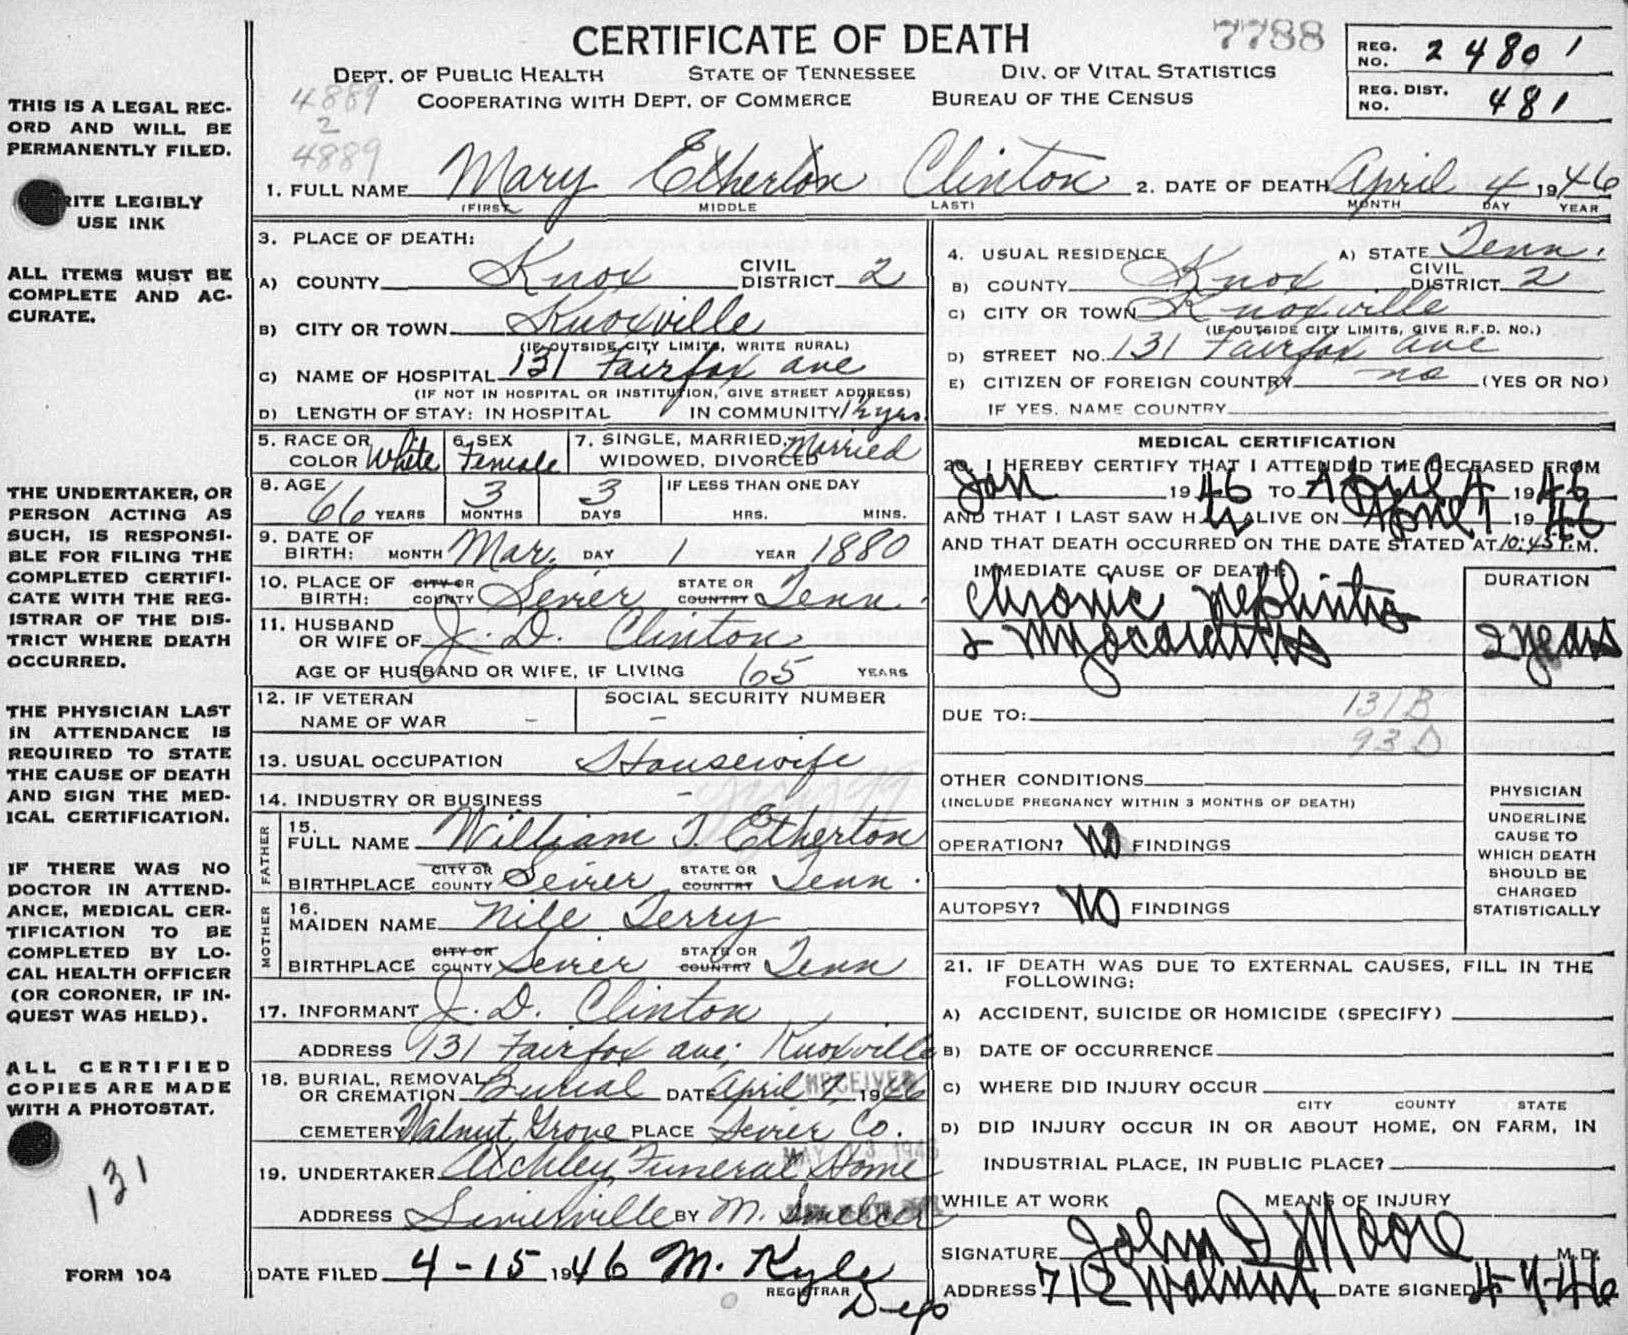 CERTIFICATE OF DEATH
7788
REG. NO. 2 480 1
DEPT. OF PUBLIC HEALTH STATE OF TENNESSEE DIV. OF VITAL STATISTICS
COOPERATING WITH DEPT. OF COMMERCE BUREAU OF THE CENSUS
REG. DIST. NO. 481
4889
2
4889
1. FULL NAME Mary Etherton Clinton 2. DATE OF DEATH April 4 1946
(FIRST MIDDLE LAST) MONTH DAY YEAR
THIS IS A LEGAL REC-
ORD AND WILL BE
PERMANENTLY FILED.
RITE LEGIBLY
USE INK
ALL ITEMS MUST BE
COMPLETE AND AC-
CURATE.
THE UNDERTAKER, OR
PERSON ACTING AS
SUCH, IS RESPONSI-
BLE FOR FILING THE
COMPLETED CERTIFI-
CATE WITH THE REG-
ISTRAR OF THE DIS-
TRICT WHERE DEATH
OCCURRED.
THE PHYSICIAN LAST
IN ATTENDANCE IS
REQUIRED TO STATE
THE CAUSE OF DEATH
AND SIGN THE MED-
ICAL CERTIFICATION.
IF THERE WAS NO
DOCTOR IN ATTEND-
ANCE, MEDICAL CER-
TIFICATION TO BE
COMPLETED BY LO-
CAL HEALTH OFFICER
(OR CORONER, IF IN-
QUEST WAS HELD).
ALL CERTIFIED
COPIES ARE MADE
WITH A PHOTOSTAT.
131
FORM 104
3. PLACE OF DEATH:
A) COUNTY Knox CIVIL DISTRICT 2
B) CITY OR TOWN Knoxville
(IF OUTSIDE CITY LIMITS, WRITE RURAL)
C) NAME OF HOSPITAL 131 Fairfax ave
(IF NOT IN HOSPITAL OR INSTITUTION, GIVE STREET ADDRESS)
D) LENGTH OF STAY: IN HOSPITAL IN COMMUNITY yrs.
5. RACE OR COLOR White 6. SEX Female 7. SINGLE, MARRIED, WIDOWED, DIVORCED Married
8. AGE 66 YEARS 3 MONTHS 3 DAYS IF LESS THAN ONE DAY HRS. MINS.
9. DATE OF BIRTH: MONTH Mar. DAY 1 YEAR 1880
10. PLACE OF BIRTH: CITY OR COUNTY Sevier STATE OR COUNTRY Tenn.
11. HUSBAND OR WIFE OF J. D. Clinton
AGE OF HUSBAND OR WIFE, IF LIVING 65 YEARS
12. IF VETERAN NAME OF WAR - SOCIAL SECURITY NUMBER -
13. USUAL OCCUPATION Housewife
14. INDUSTRY OR BUSINESS -
FATHER
15. FULL NAME William T. Etherton
BIRTHPLACE CITY OR COUNTY Sevier STATE OR COUNTRY Tenn.
MOTHER
16. MAIDEN NAME Nile Terry
BIRTHPLACE CITY OR COUNTY Sevier STATE OR COUNTRY Tenn
17. INFORMANT J. D. Clinton
ADDRESS 131 Fairfox ave; Knoxville
18. BURIAL, REMOVAL OR CREMATION Burial DATE April 7, 1946
RECEIVED
CEMETERY Walnut Grove PLACE Sevier Co.
19. UNDERTAKER Atchley Funeral Home
ADDRESS Sevierville BY M.
DATE FILED 4-15 1946 M. Kyle
REGISTRAR
Dep
4. USUAL RESIDENCE A) STATE Tenn.
B) COUNTY Knox CIVIL DISTRICT 2
C) CITY OR TOWN Knoxville
(IF OUTSIDE CITY LIMITS, GIVE R.F.D. NO.)
D) STREET NO. 131 Fairfox ave
E) CITIZEN OF FOREIGN COUNTRY no (YES OR NO)
IF YES, NAME COUNTRY
MEDICAL CERTIFICATION
20. I HEREBY CERTIFY THAT I ATTENDED THE DECEASED FROM
Jan 1946 TO April 4 1946
AND THAT I LAST SAW H ALIVE ON April 1 1946
AND THAT DEATH OCCURRED ON THE DATE STATED AT 10:45 P.M.
IMMEDIATE CAUSE OF DEATH: DURATION
Chronic Nephritis
& Myocarditis 2 years
DUE TO: 131 B
93 D
OTHER CONDITIONS
(INCLUDE PREGNANCY WITHIN 3 MONTHS OF DEATH)
OPERATION? NO FINDINGS
AUTOPSY? NO FINDINGS
PHYSICIAN
UNDERLINE
CAUSE TO
WHICH DEATH
SHOULD BE
CHARGED
STATISTICALLY
21. IF DEATH WAS DUE TO EXTERNAL CAUSES, FILL IN THE
FOLLOWING:
A) ACCIDENT, SUICIDE OR HOMICIDE (SPECIFY)
B) DATE OF OCCURRENCE
C) WHERE DID INJURY OCCUR
CITY COUNTY STATE
D) DID INJURY OCCUR IN OR ABOUT HOME, ON FARM, IN
INDUSTRIAL PLACE, IN PUBLIC PLACE?
WHILE AT WORK MEANS OF INJURY
SIGNATURE John D Moore M.D.
ADDRESS 712 Walnut DATE SIGNED 4-9-46